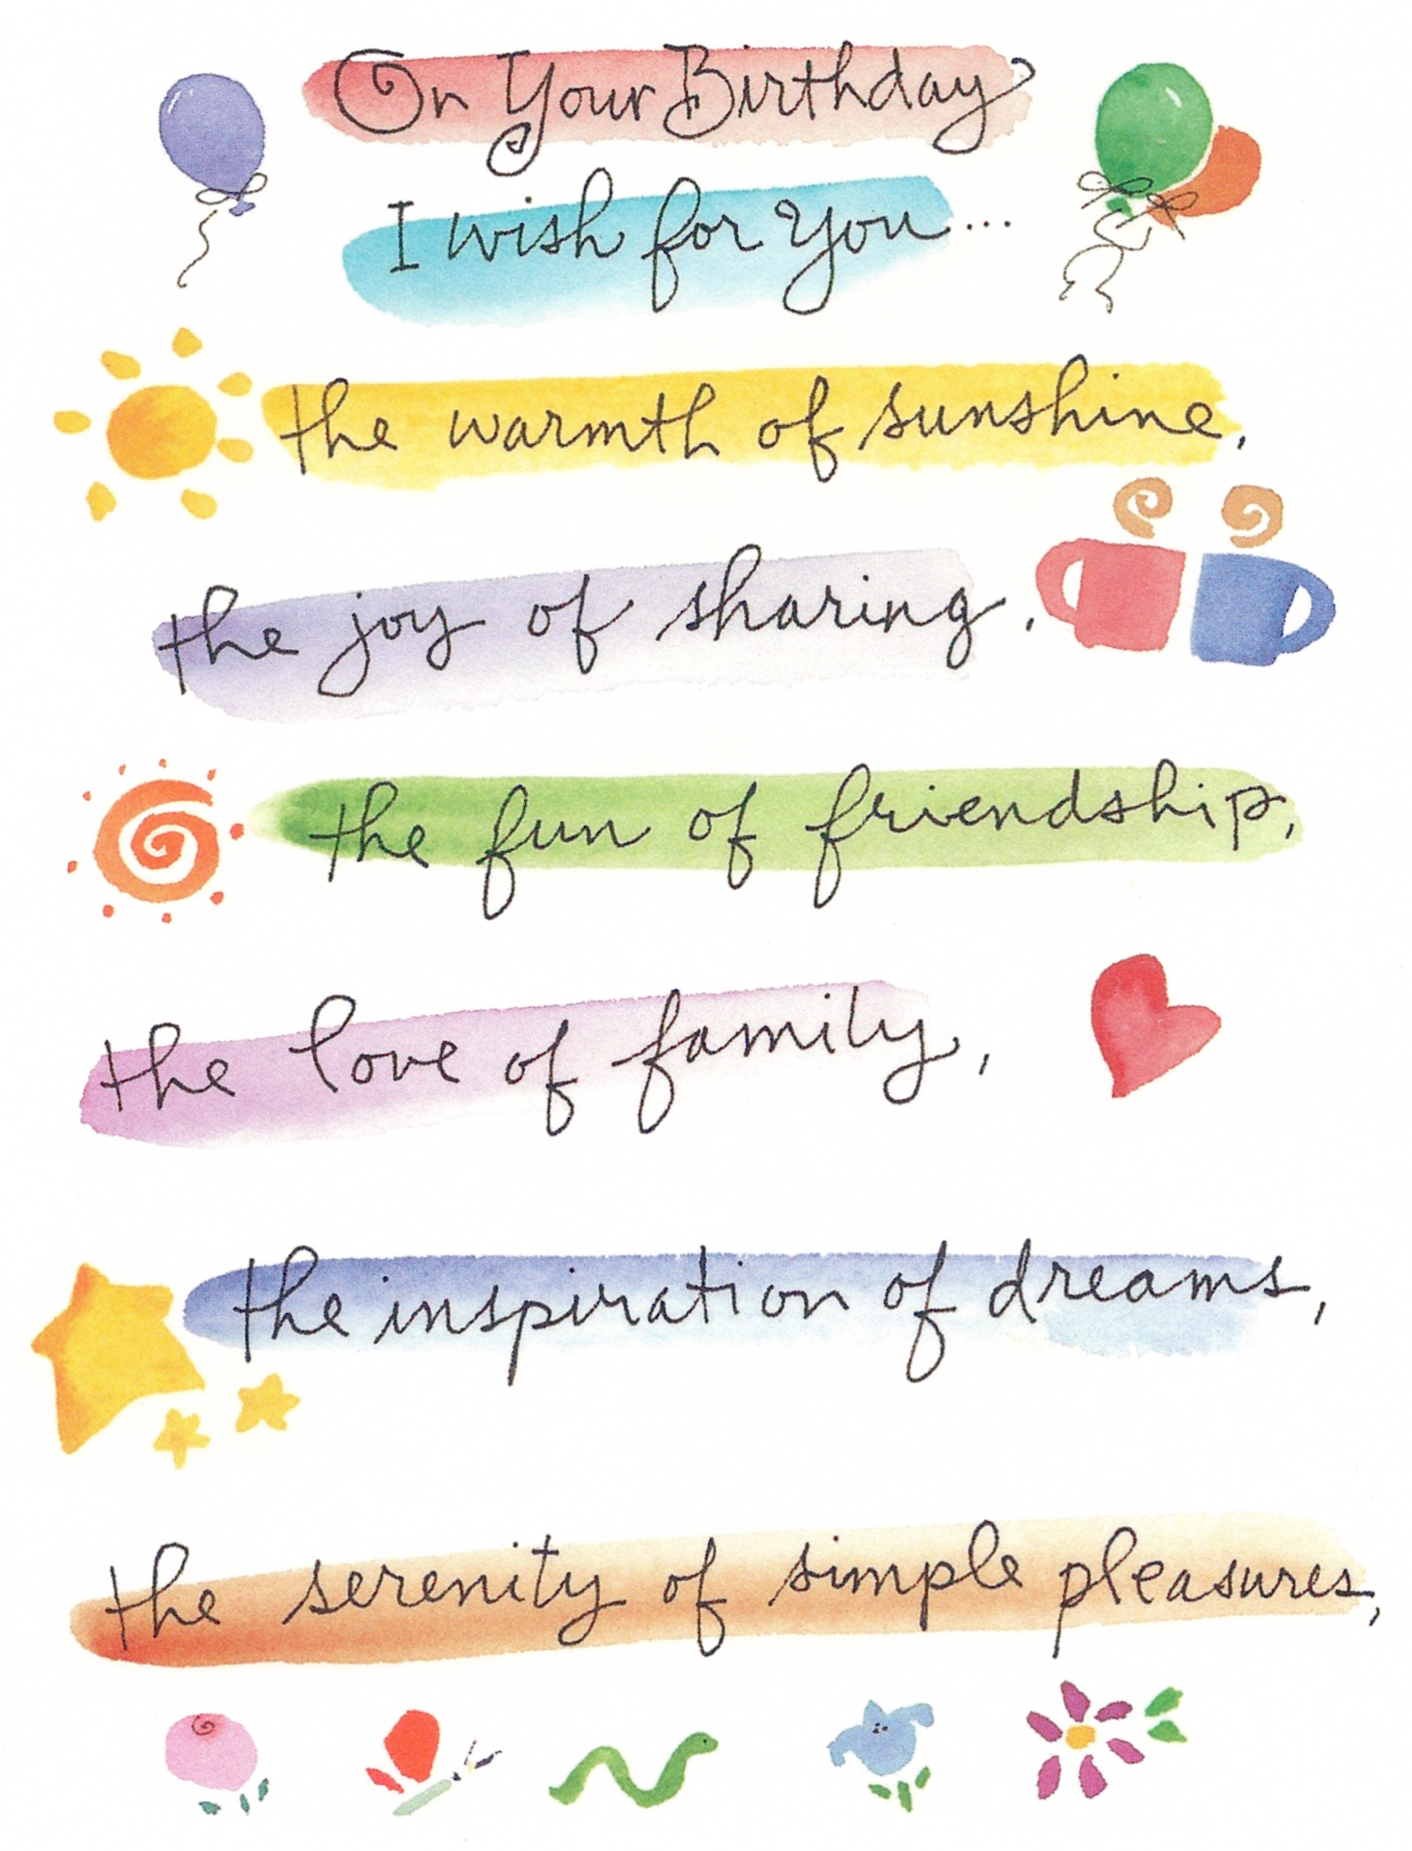 On Your Birthday
I wish for You...
the warmth of sunshine,
the joy of sharing,
the fun of friendship,
the love of family,
the inspiration of dreams,
the serenity of simple pleasures,